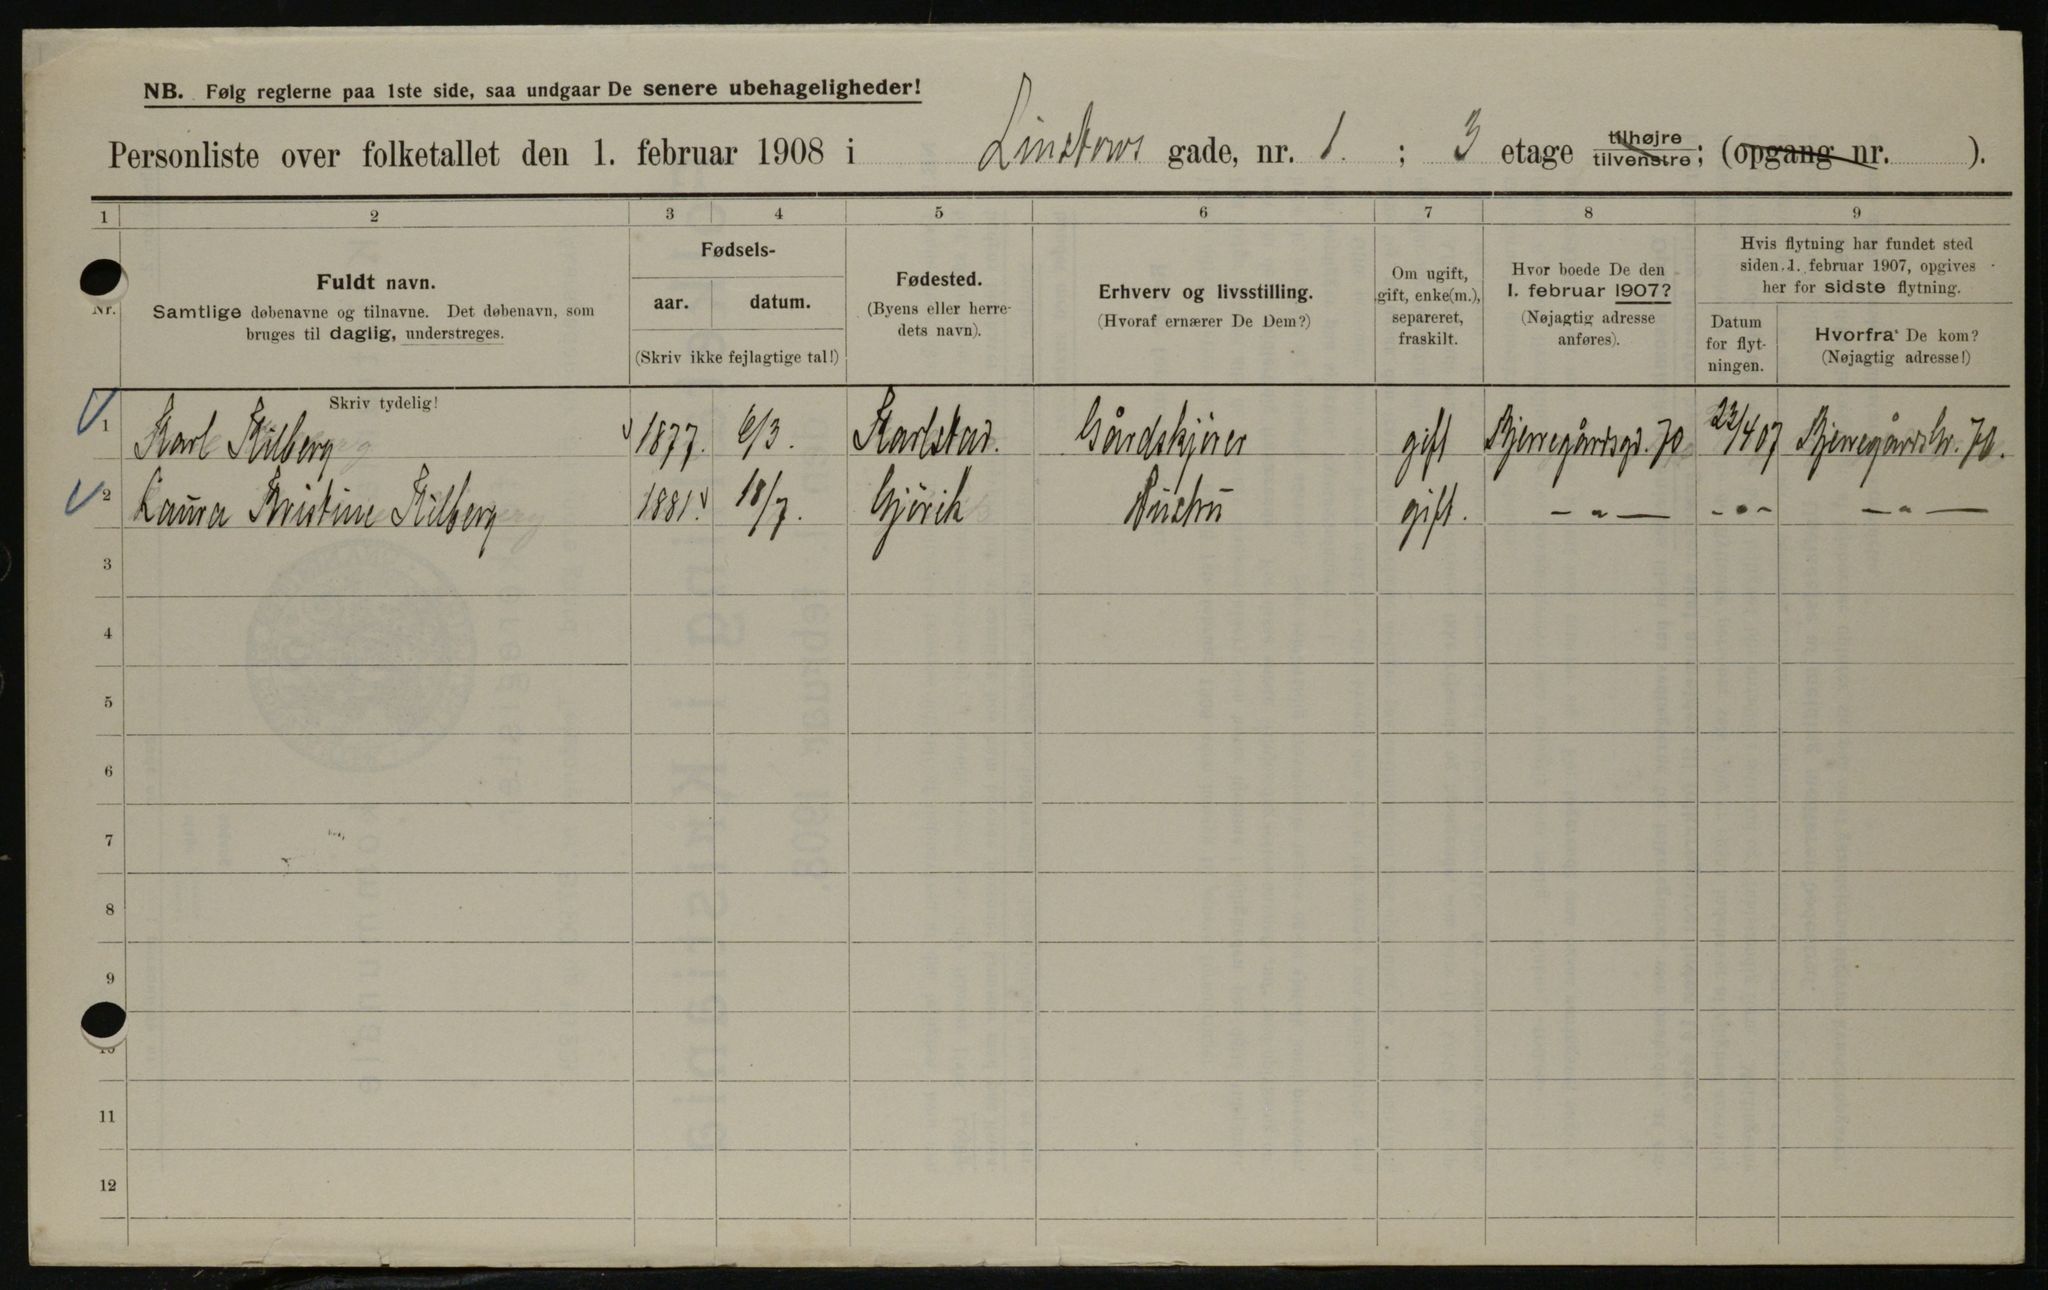 NB. Følg reglerne paa 1ste side, saa undgaar De senere ubehageligheder!
Personliste over folketallet den 1. februar 1908 i Linstows gade, nr. 1. ; 3 etage tilhøjre tilvenstre; (opgang nr. ).
1 2 3 4 5 6 7 8 9
Nr.
Fuldt navn.
Samtlige døbenavne og tilnavne. Det døbenavn, som
bruges til daglig, understreges.
Fødsels-
aar. datum.
(Skriv ikke fejlagtige tal!)
Fødested.
(Byens eller herre-
dets navn).
Erhverv og livsstilling.
(Hvoraf ernærer De Dem?)
Om ugift,
gift, enke(m.),
separeret,
fraskilt.
Hvor boede De den
1. februar 1907?
(Nøjagtig adresse
anføres).
Hvis flytning har fundet sted
siden 1. februar 1907, opgives
her for sidste flytning.
Datum
for flyt-
ningen.
Hvorfra De kom?
(Nøjagtig adresse!)
Skriv tydelig!
1 Karl Kilberg 1877. 6/3. Karlstad. Gårdskjører gift Bjerregårdsgd. 70 23/4 07 Bjerregårdsgt. 70.
2 Laura Kristine Kilberg 1881. 18/7. Gjøvik Hustru gift. - " - - " - - " -
3
4
5
6
7
8
9
10
11
12